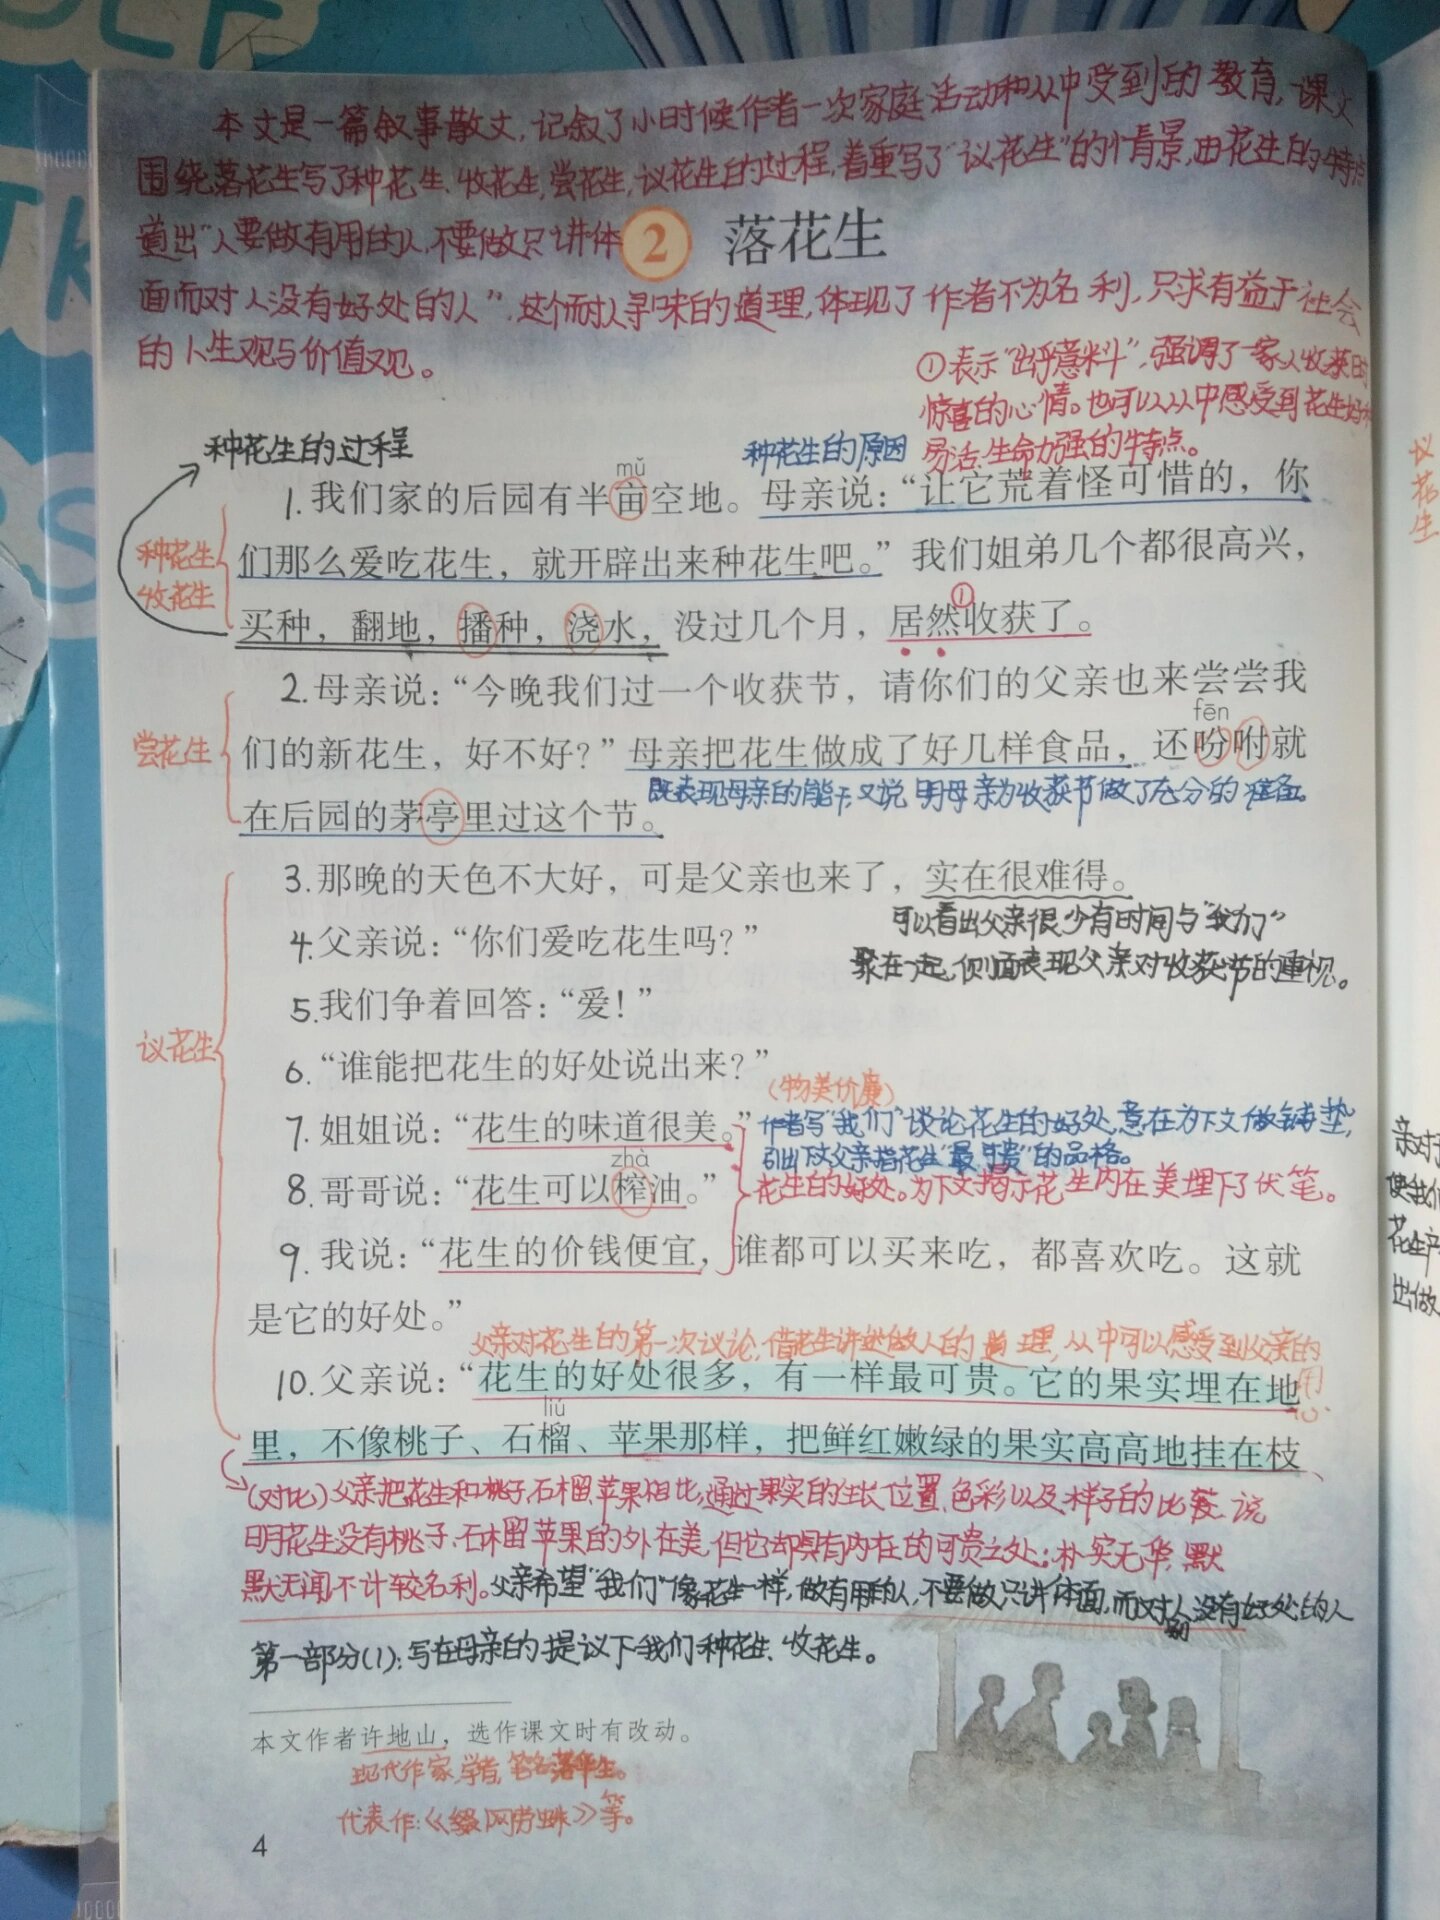 本文是一篇叙事散文,记叙了小时候作者一次家庭活动和从中受到的教育,课文
围绕落花生写了种花生、收花生,尝花生,议花生的过程,着重写了“议花生”的情景,由花生的特点
道出“人要做有用的人,不要做只讲体
2 落花生
面而对人没有好处的人”,这个耐人寻味的道理,体现了作者不为名利,只求有益于社会
的人生观与价值观。
①表示“出乎意料”,强调了一家人收获时
惊喜的心情。也可以从中感受到花生好种
易活、生命力强的特点。
种花生的过程
种花生的原因
mǔ
1.我们家的后园有半亩空地。母亲说:“让它荒着怪可惜的,你
种花生
们那么爱吃花生,就开辟出来种花生吧。”我们姐弟几个都很高兴,
收花生
①
买种,翻地,播种,浇水,没过几个月,居然收获了。
2.母亲说:“今晚我们过一个收获节,请你们的父亲也来尝尝我
fēn
尝花生
们的新花生,好不好?”母亲把花生做成了好几样食品,还吩咐就
既表现母亲的能干,又说明母亲为收获节做了充分的准备。
在后园的茅亭里过这个节。
3.那晚的天色不大好,可是父亲也来了,实在很难得。
可以看出父亲很少有时间与“我们”
4.父亲说:“你们爱吃花生吗?”
聚在一起,侧面表现父亲对收获节的重视。
5.我们争着回答:“爱!”
议花生
6.“谁能把花生的好处说出来?”
(物美价廉)
7.姐姐说:“花生的味道很美。”
作者写“我们”谈论花生的好处,意在为下文做铺垫,
引出下文父亲指花生“最可贵”的品格。
zhà
8.哥哥说:“花生可以榨油。”
花生的好处。为下文揭示花生内在美埋下了伏笔。
9.我说:“花生的价钱便宜,谁都可以买来吃,都喜欢吃。这就
是它的好处。”
父亲对花生的第一次议论,借花生讲述做人的道理,从中可以感受到父亲的
用心
10.父亲说:“花生的好处很多,有一样最可贵。它的果实埋在地
liú
里,不像桃子、石榴、苹果那样,把鲜红嫩绿的果实高高地挂在枝
(对比)父亲把花生和桃子,石榴,苹果相比,通过果实的生长位置、色彩以及样子的比较,说
明花生没有桃子、石榴苹果的外在美,但它却具有内在的可贵之处:朴实无华,默
默无闻,不计较名利。父亲希望“我们”像花生一样,做有用的人,不要做只讲体面,而对别人没有好处的人
第一部分(1):写在母亲的提议下我们种花生、收花生。
本文作者许地山,选作课文时有改动。
现代作家,学者,笔名落华生。
代表作:《缀网劳蛛》等。
4
议花生
亲对
使我们
花生
出做